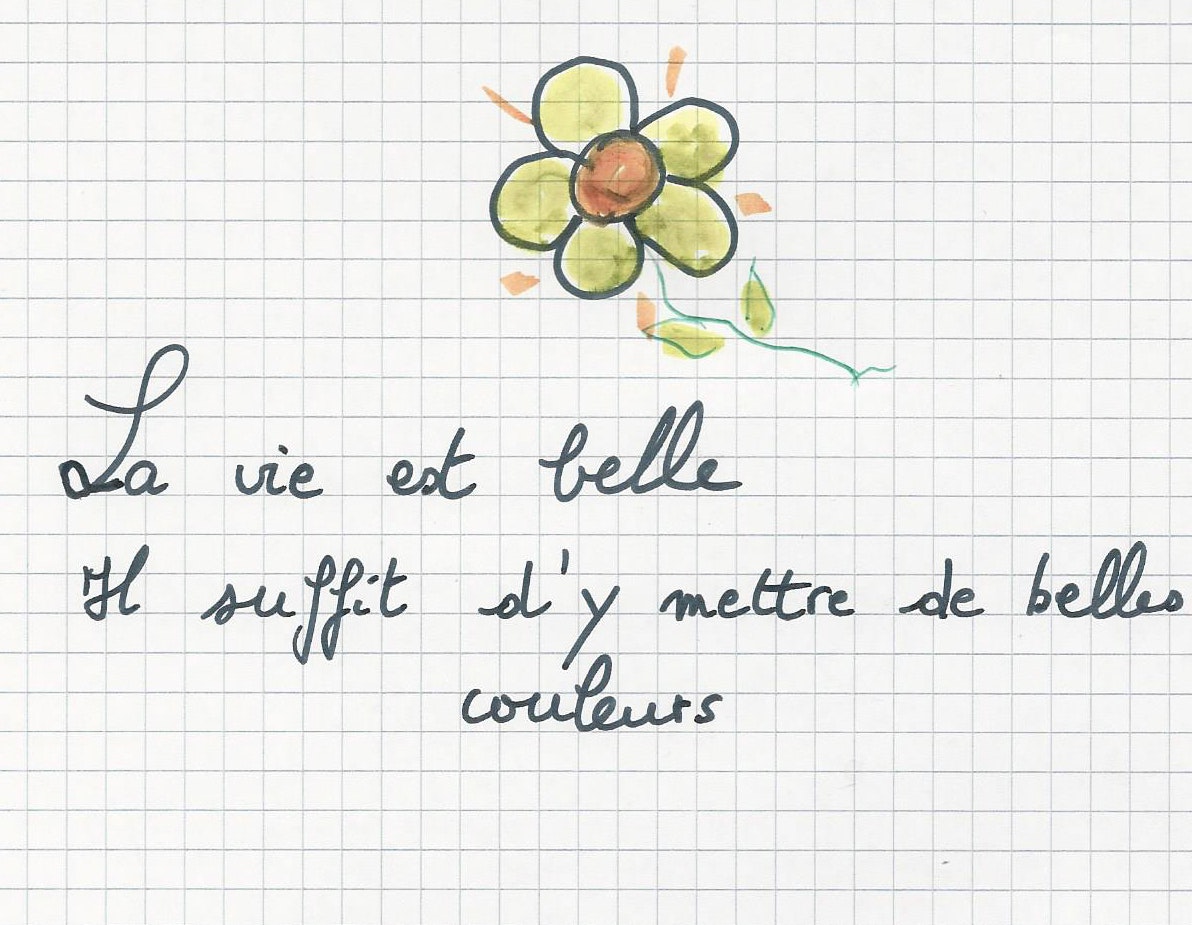 La vie est belle
Il suffit d'y mettre de belles
couleurs